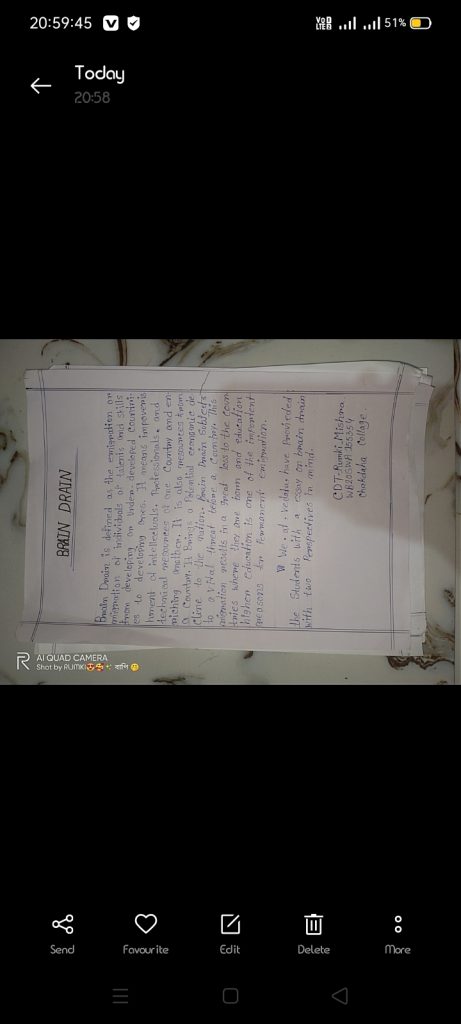 20:59:45
Vo LTE 51%
Today
20:58
BRAIN DRAIN
Brain Drain is defined as the emigration or
migration of individuals of talents and skills
from developing or under developed countri-
es to developing ones. It means impoveris
hment of intellectuals, Professionals, and
technical resources of one country and en
riching another. It is also resources from
a country. It brings a Potential economic de
cline to the nation. Brain Drain Subjects
to a vital threat before a country. This
migration results in a great loss to the Coun
tries where they are born and education
higher education is one of the important
reasons for Permanent emigration.
We at vedalu have provided
the students with a essay on brain drain
with two Perspectives in mind.
CDT-Rumki Mishra
Chakdaha College
R AI QUAD CAMERA
Shot by RUMKI😍🥰✨ বাপি 😋
Send
Favourite
Edit
Delete
More